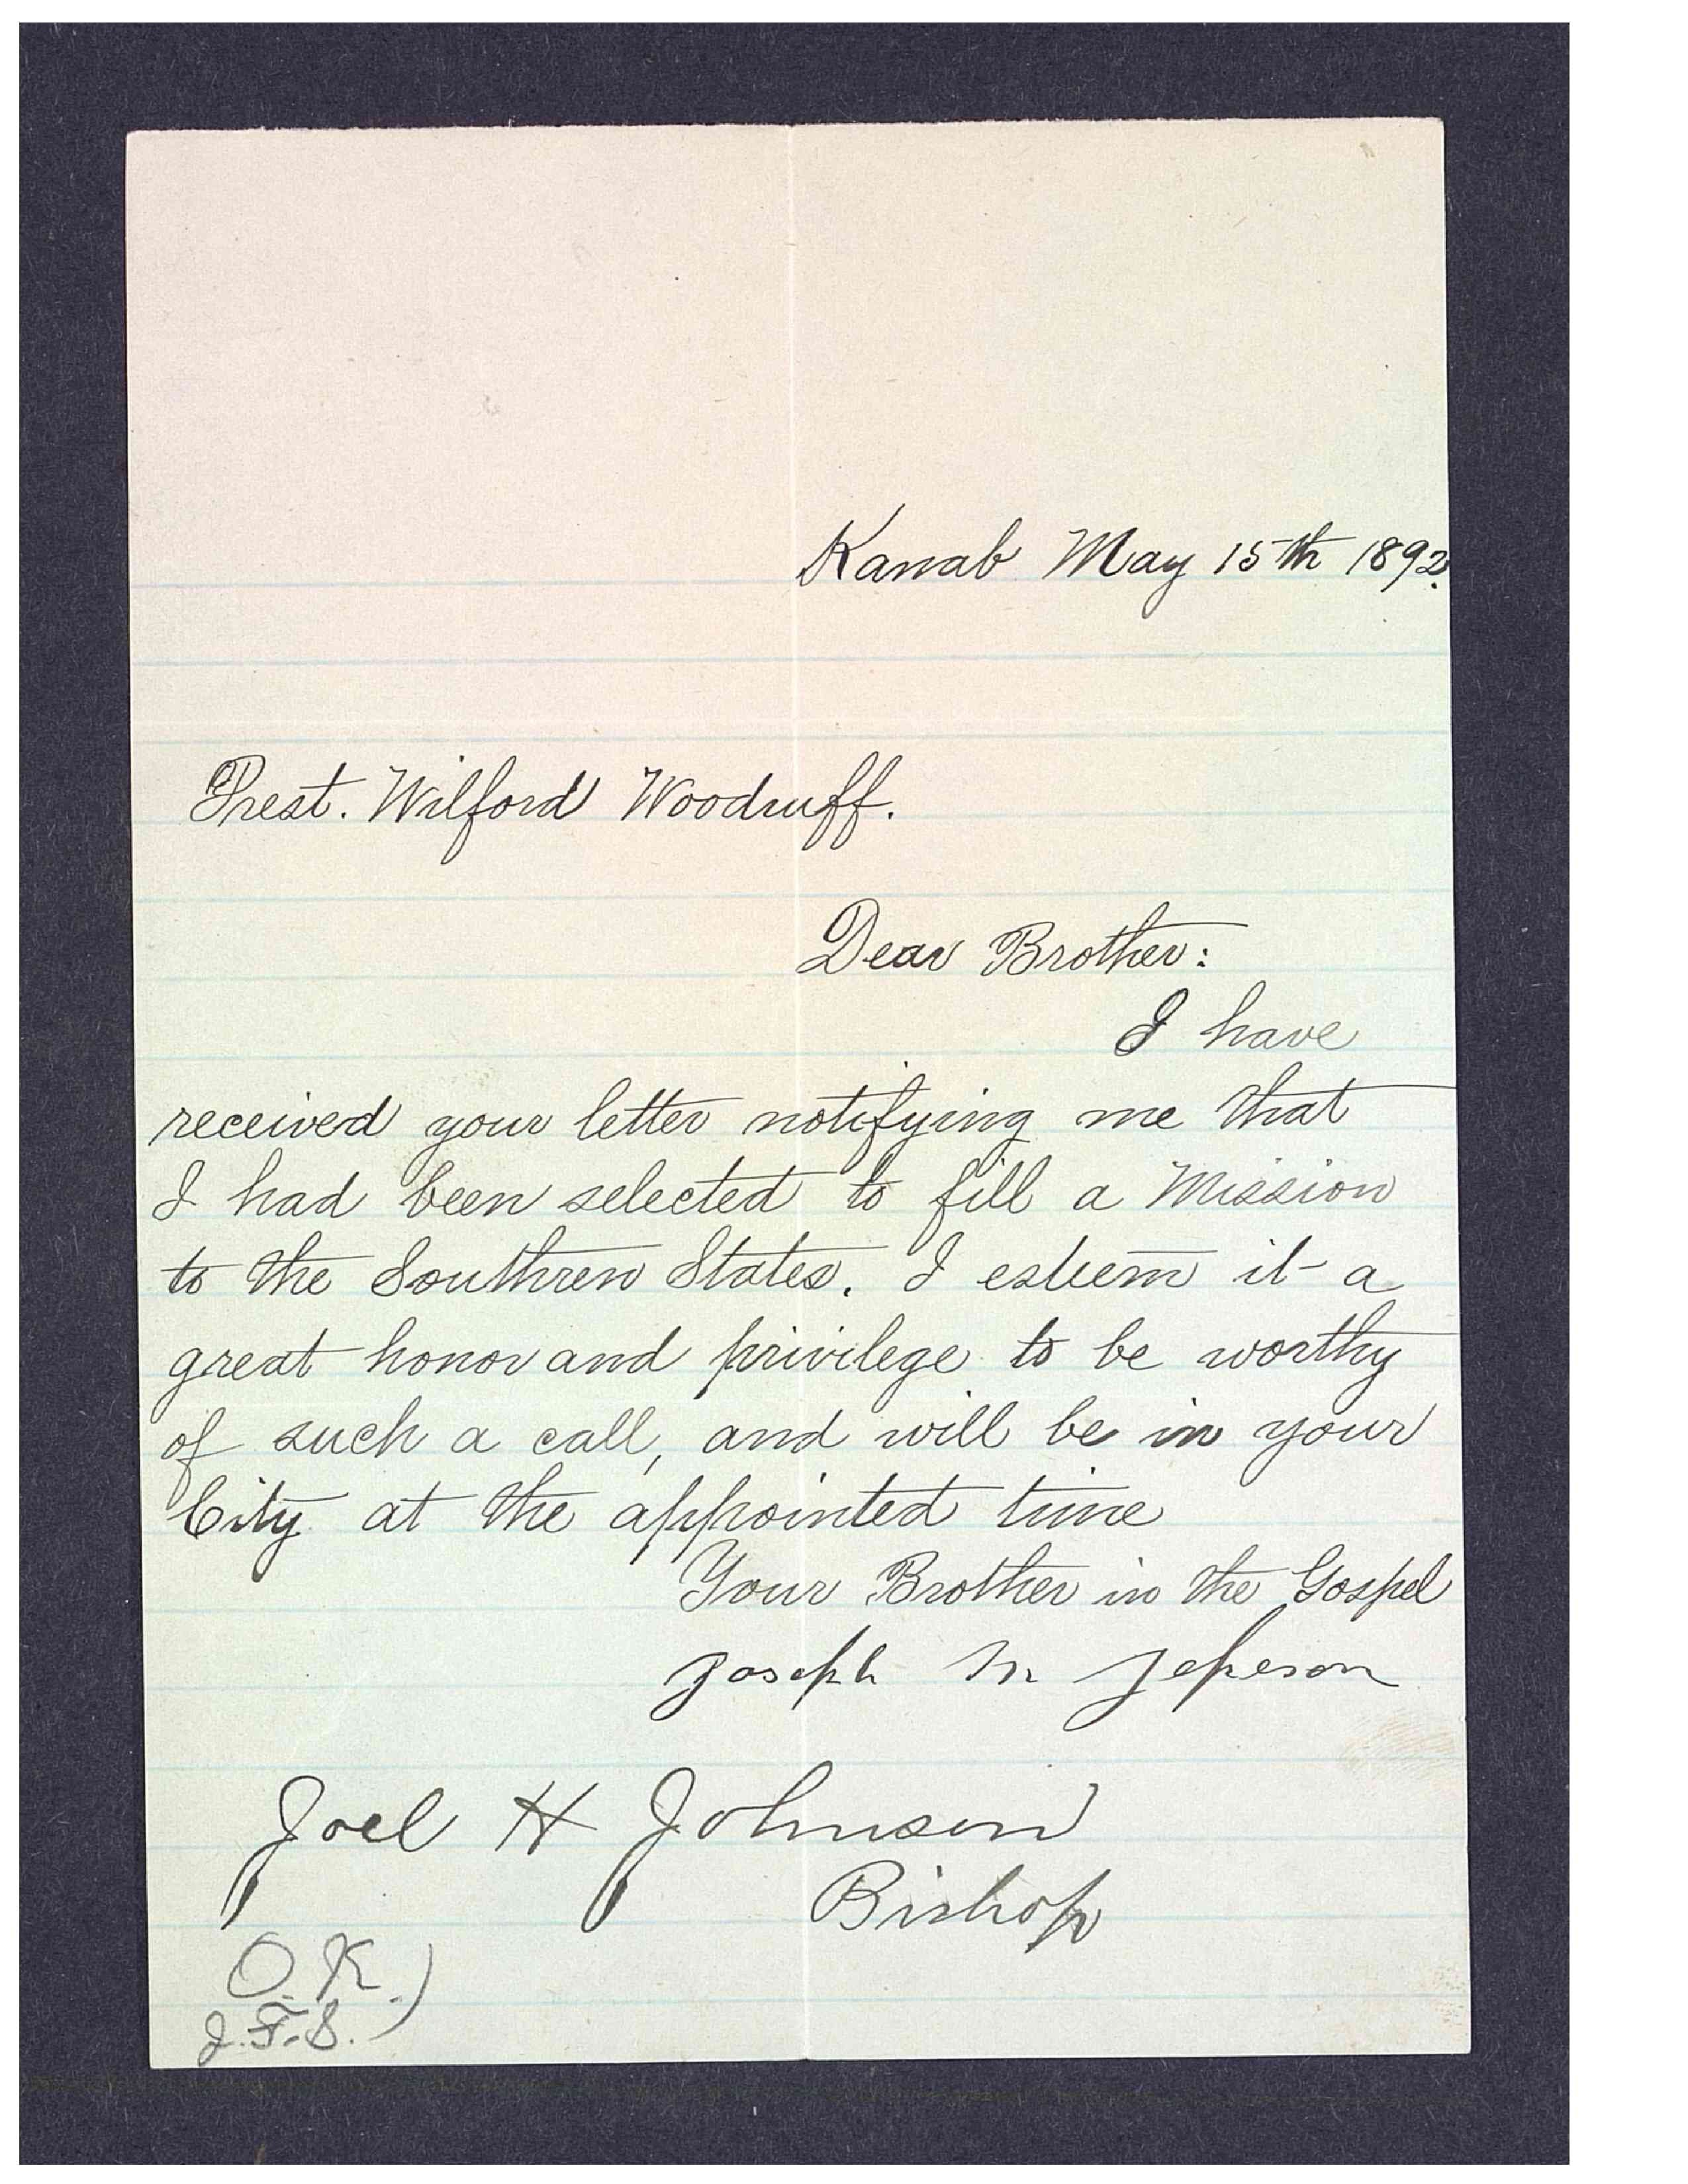 Kanab May 15th 1892.
Prest. Wilford Woodruff.
Dear Brother:
I have
received your letter notifying me that
I had been selected to fill a Mission
to the Southren States. I esteem it a
great honor and privilege to be worthy
of such a call, and will be in your
City at the appointed time
Your Brother in the Gospel
Joseph M Jepeson
Joel H Johnson
Bishop
O.K.)
J.F.S.